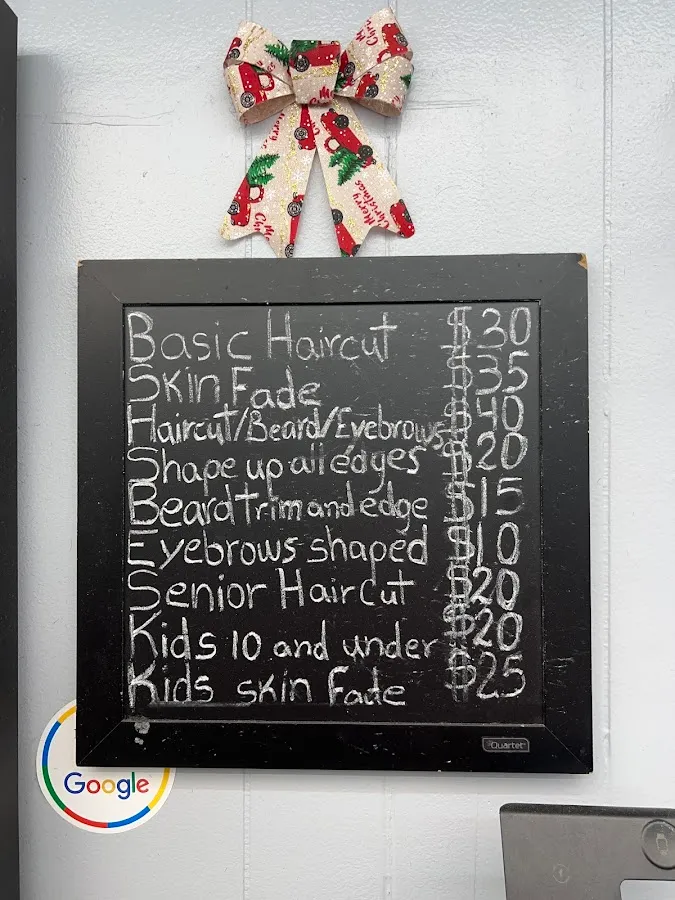 Merry Christmas
Basic Haircut $30
Skin Fade $35
Haircut/Beard/Eyebrows $40
Shape up all edges $20
Beard trim and edge $15
Eyebrows shaped $10
Senior Haircut $20
Kids 10 and under $20
Kids skin fade $25
Quartet
Google